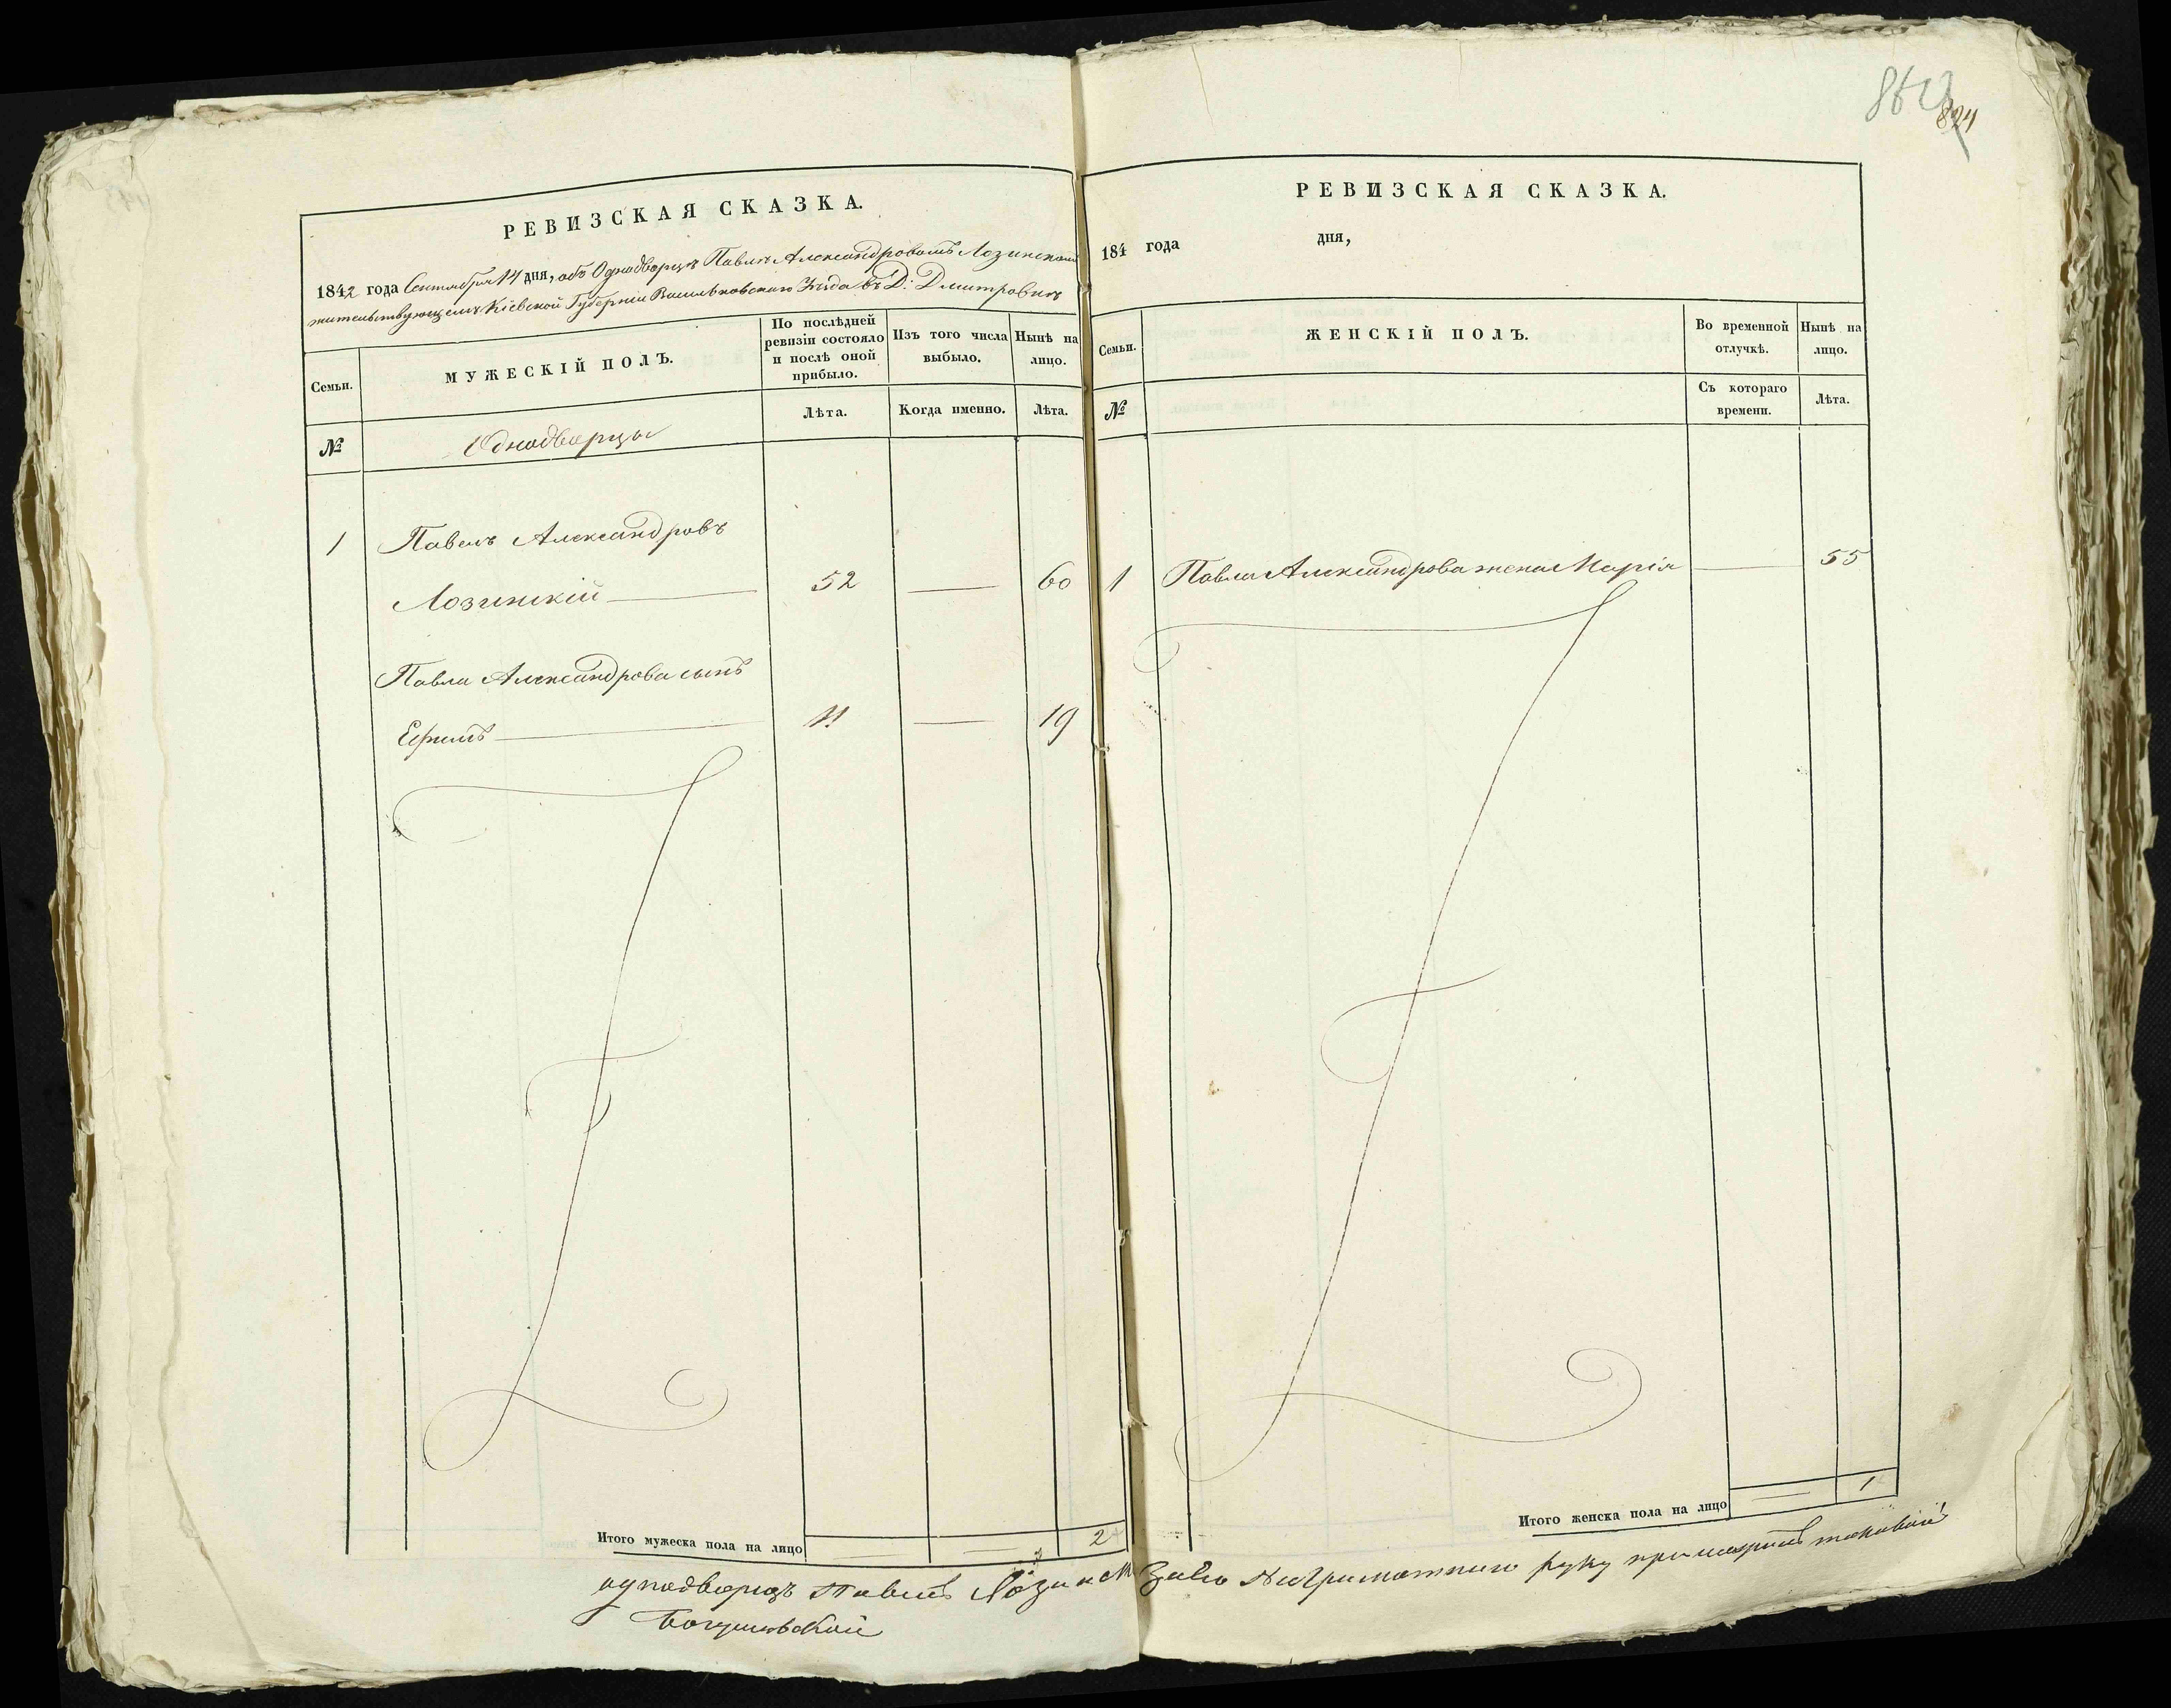 863
824
РЕВИЗСКАЯ СКАЗКА.
1842 года Сентября 14 дня, объ Однодворцѣ Павлѣ Александровомъ Лозинскомъ
жительствующемъ Кіевской Губерніи Васильковскаго Уѣзда въ Д: Дмитровкѣ
Семьи.
МУЖЕСКІЙ ПОЛЪ.
По послѣдней ревизіи состояло и послѣ оной прибыло.
Изъ того числа выбыло.
Нынѣ на лицо.
№
Однодворцы
Лѣта.
Когда именно.
Лѣта.
1 Павелъ Александровъ
Лозинскій — 52 — 60
Павла Александрова сынъ
Ефимъ — 11 — 19
Итого мужеска пола на лицо — — 2
РЕВИЗСКАЯ СКАЗКА.
184 года дня,
Семьи.
ЖЕНСКІЙ ПОЛЪ.
Во временной отлучкѣ.
Нынѣ на лицо.
№
Съ котораго времени.
Лѣта.
1 Павла Александрова жена Марія — 55
Итого женска пола на лицо — 1
однодворецъ Павелъ Лозинск За его Неграмотнаго руку приложилъ